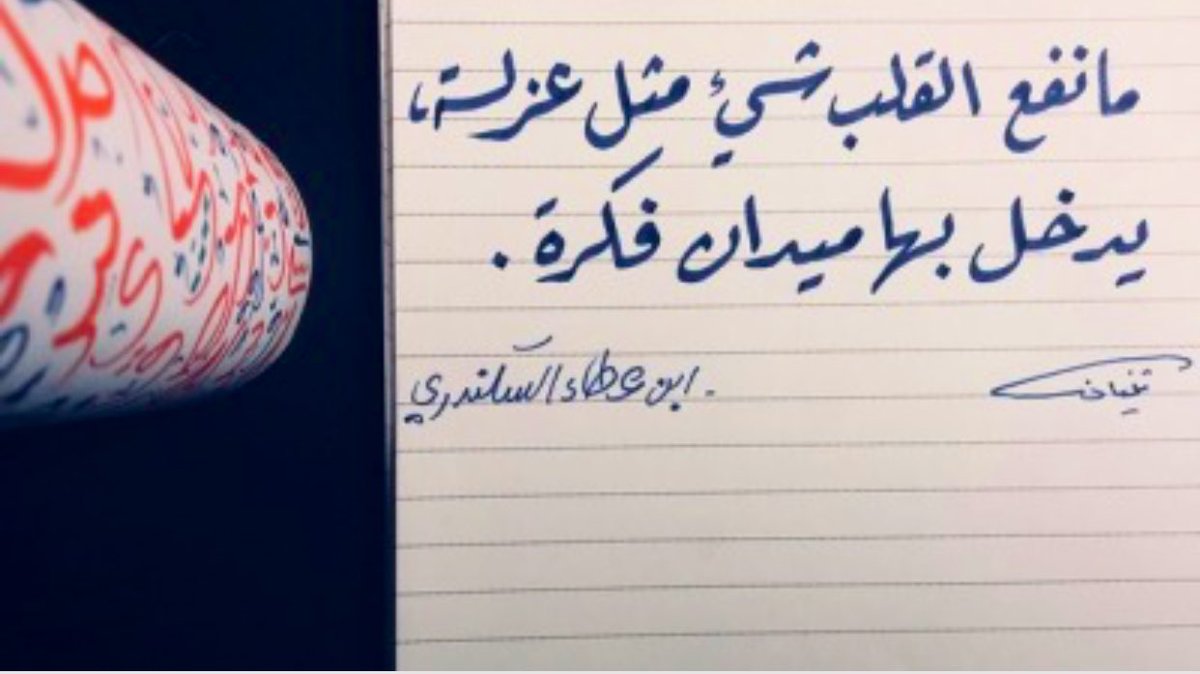 ما نفع القلب شيئ مثل عزلة،
يدخل بها ميدان فكرة .
ابن عطاء السكندري .